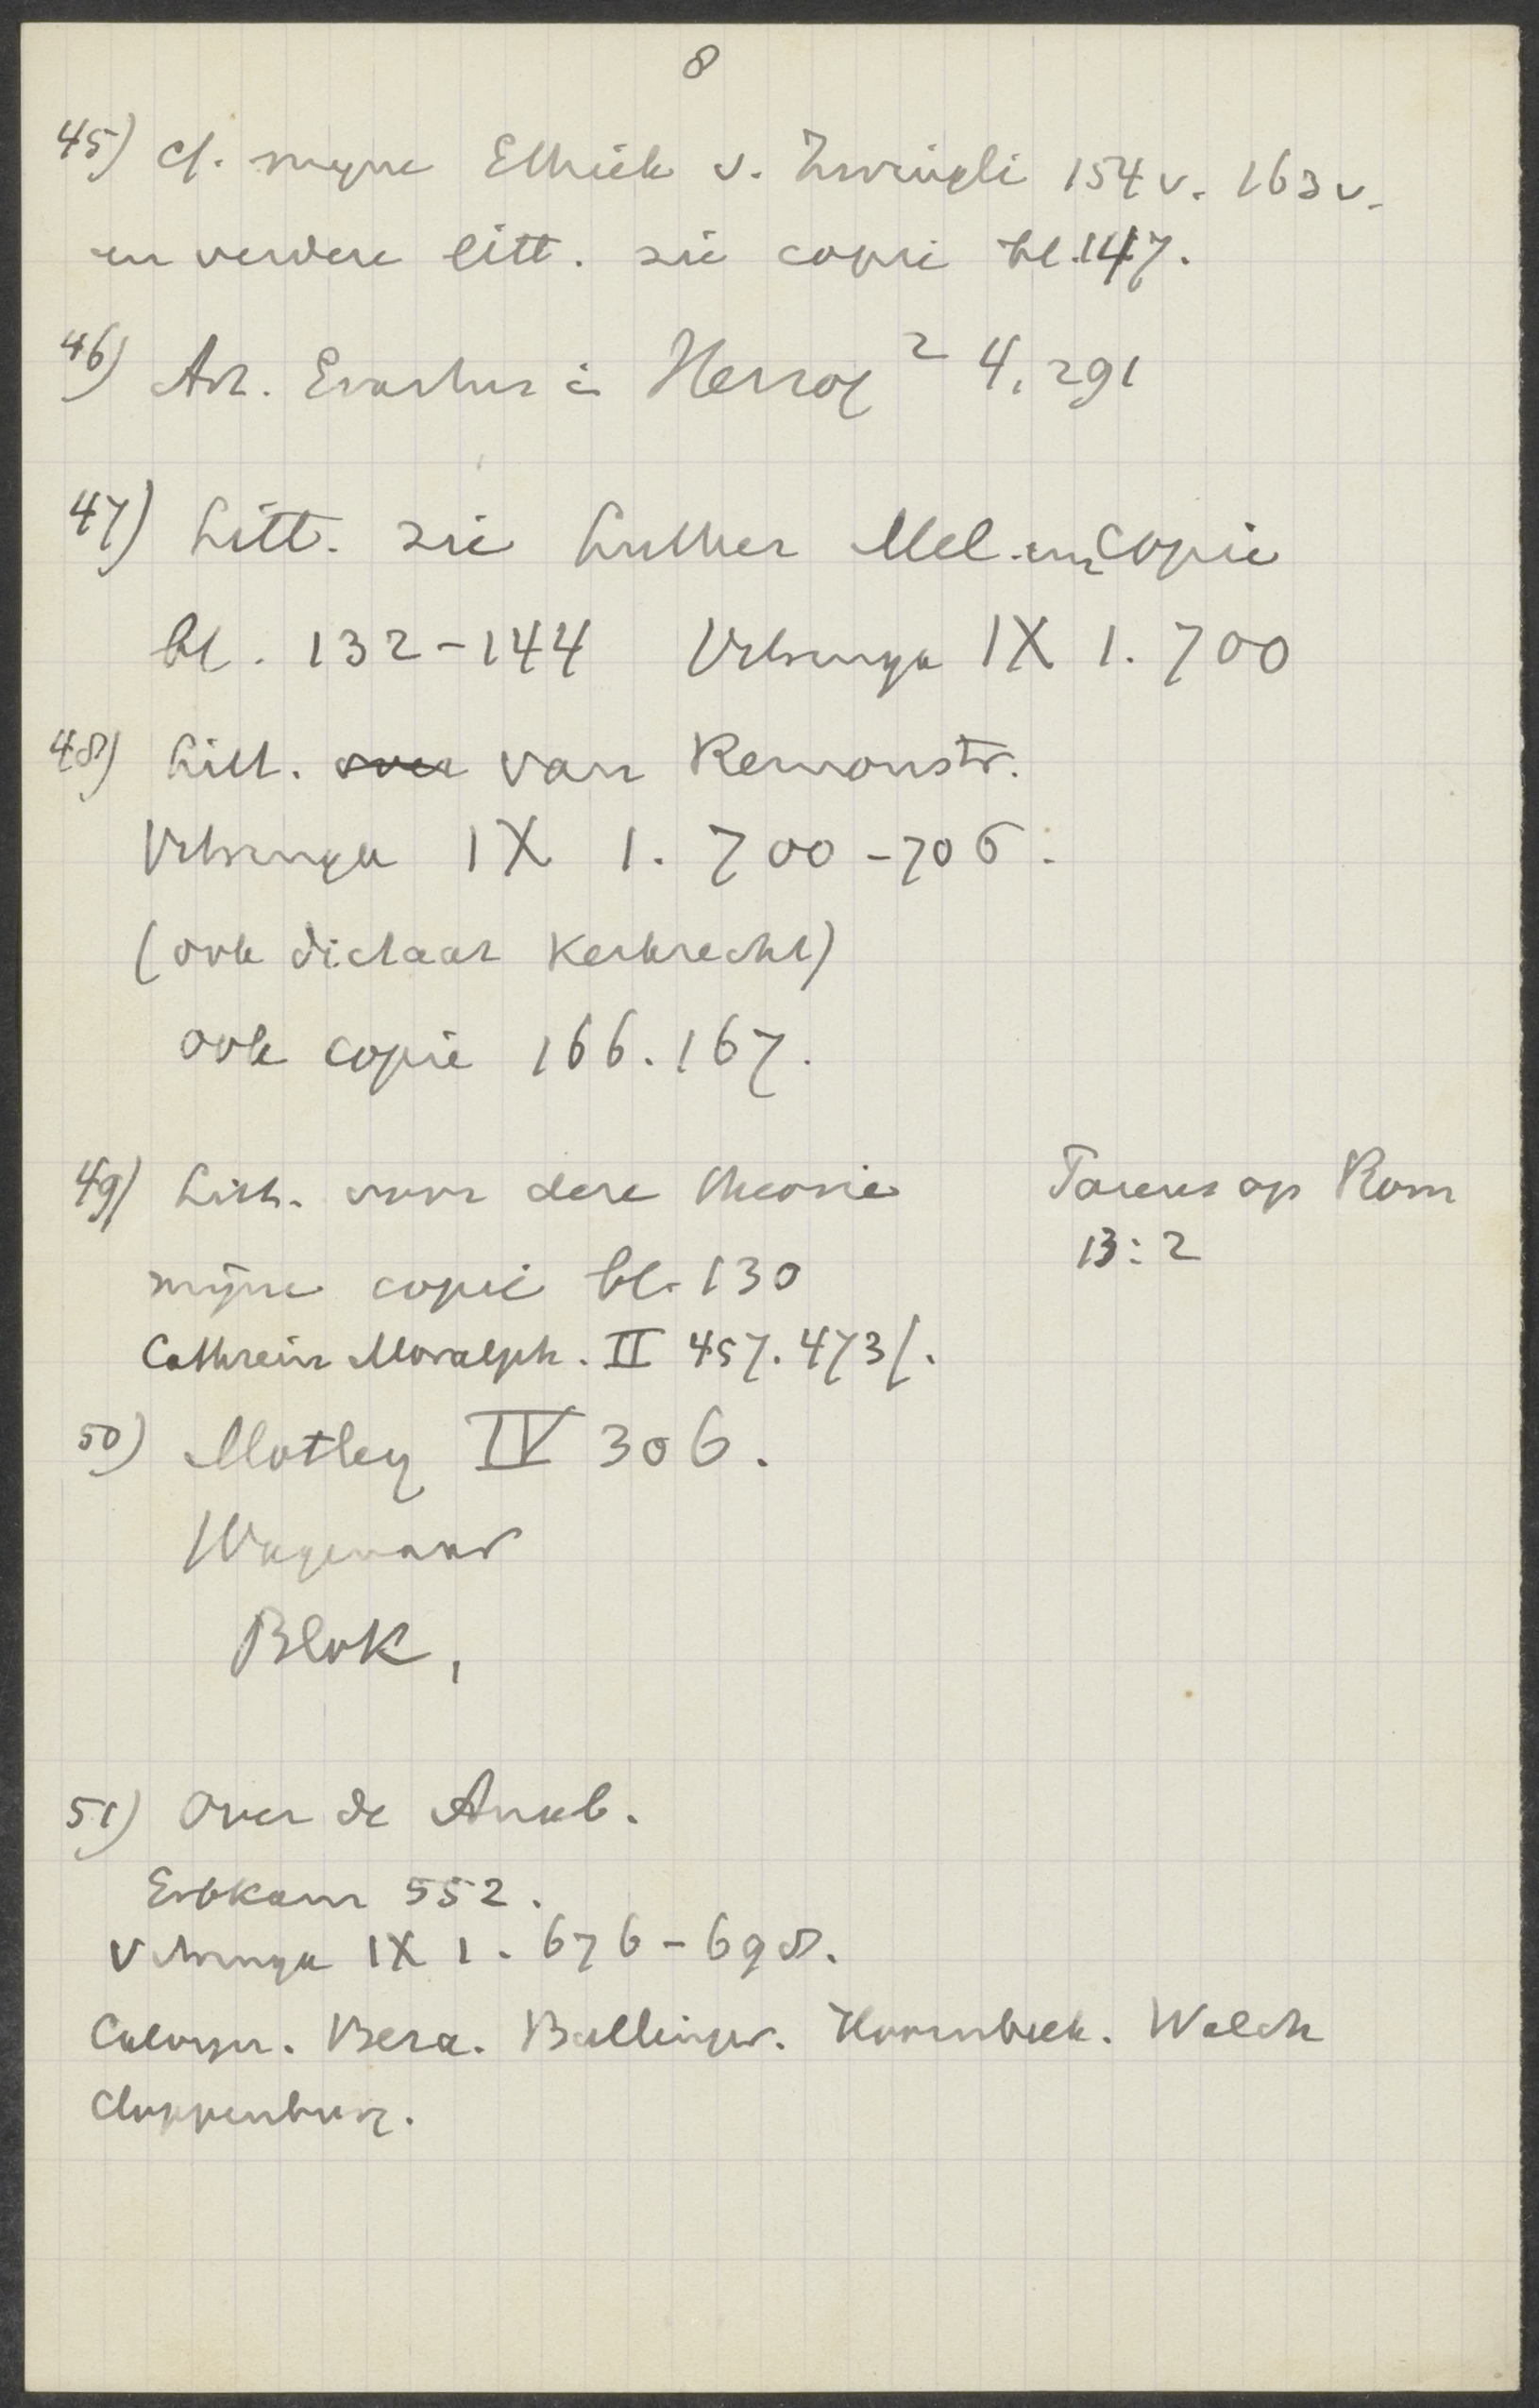 8
45) cf. mijne Ethiek v. Zwingli 154 v. 163 v.
en verdere litt. zie copie bl. 147.
46) Art. Erastus in Herzog 2 4, 291
47) Litt. zie Luther Mel. en copie
bl. 132-144 Vitringa IX 1. 700
48) Litt. over van Remonstr.
Vitringa IX 1. 700-706.
(ook dictaat Kerkrecht)
ook copie 166. 167.
49) Litt. voor deze theorie
Pareus op Rom
13:2
mijne copie bl. 130
Cathrein Moralph. II 457. 473f.
50) Motley IV 306.
Wagenaar
Blok,
51) Over de Anab.
Erbkam 552.
Vitringa IX 1. 676-698.
Calvijn. Beza. Bullinger. Hoornbeek. Walch
Cloppenburg.